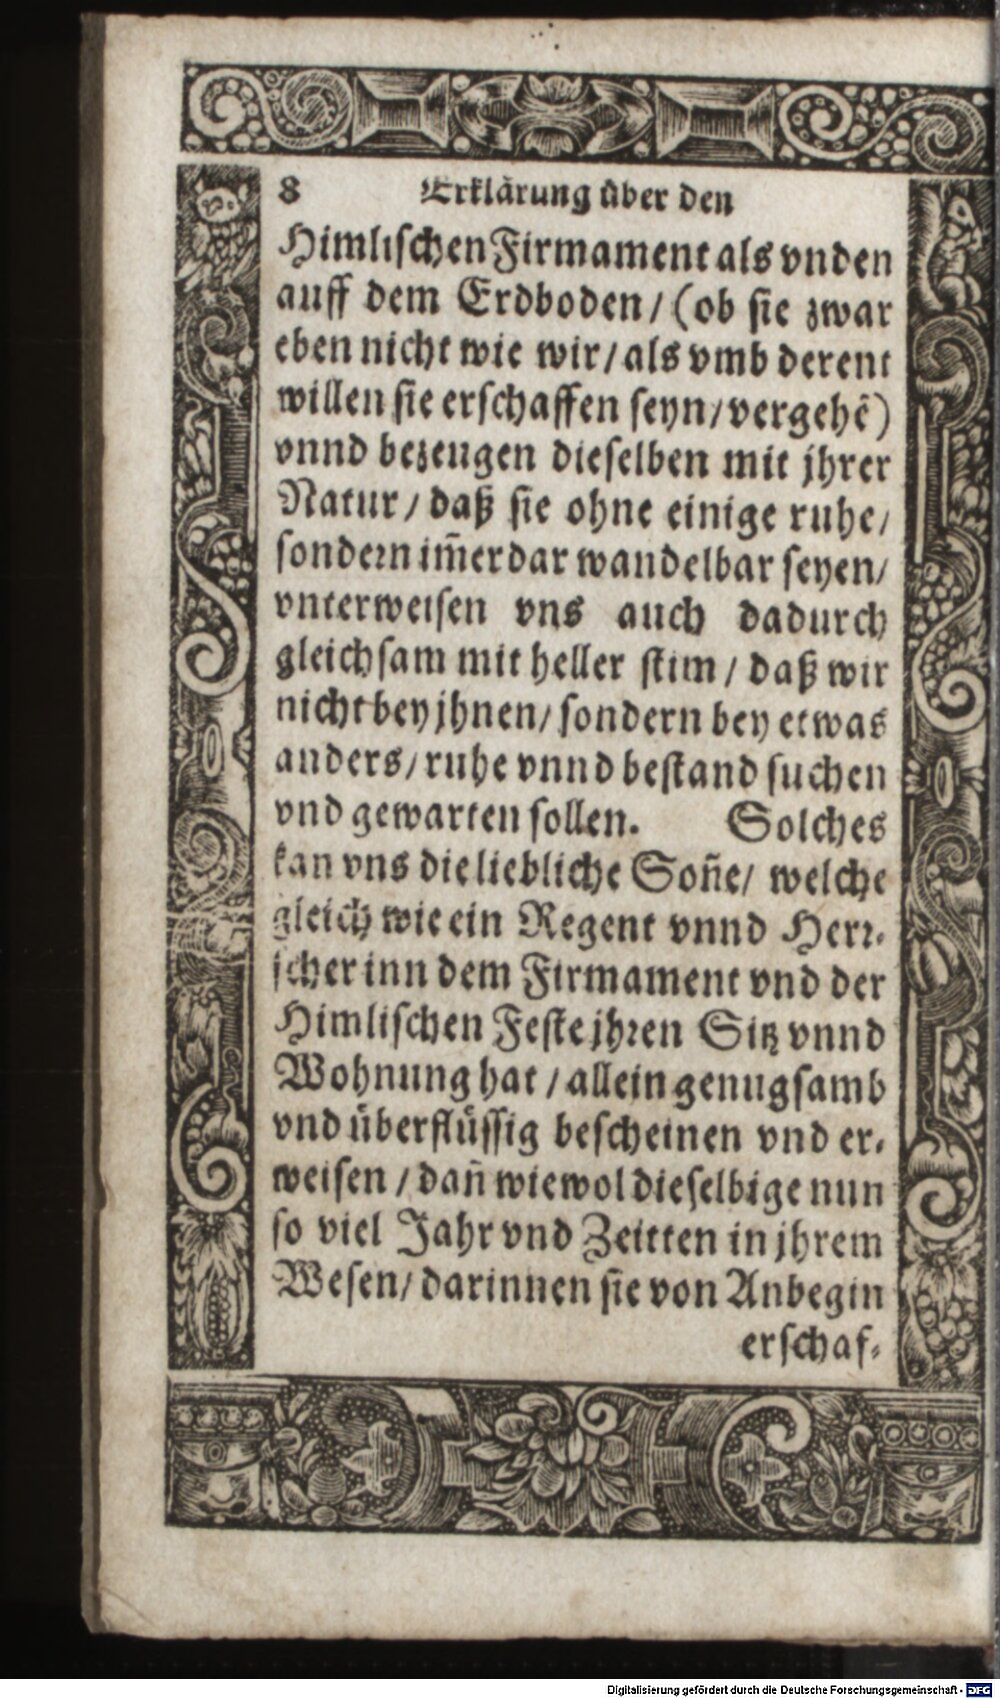 8 Erklärung über den
Himlischen Firmament als vnden
auff dem Erdboden / (ob sie zwar
eben nicht wie wir / als vmb derent
willen sie erschaffen seyn / vergehẽ)
vnnd bezeugen dieselben mit jhrer
Natur / daß sie ohne einige ruhe /
sondern im̃erdar wandelbar seyen /
vnterweisen vns auch dadurch
gleichsam mit heller stim / daß wir
nicht bey jhnen / sondern bey etwas
anders / ruhe vnnd bestand suchen
vnd gewarten sollen. Solches
kan vns die liebliche Soñe / welche
gleich wie ein Regent vnnd Herr-
scher inn dem Firmament vnd der
Himlischen Feste jhren Sitz vnnd
Wohnung hat / allein genugsamb
vnd überflüssig bescheinen vnd er-
weisen / dañ wiewol dieselbige nun
so viel Jahr vnd Zeitten in jhrem
Wesen / darinnen sie von Anbegin
erschaf-
Digitalisierung gefördert durch die Deutsche Forschungsgemeinschaft - DFG